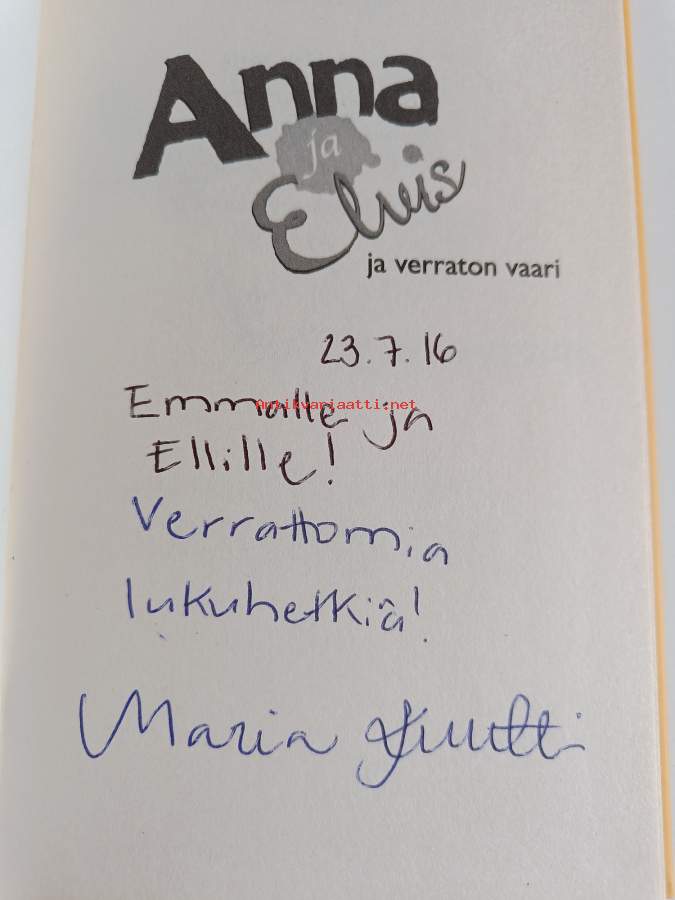 Anna
ja
Elvis
ja verraton vaari
23.7.16
Emmalle ja
Antikvariaatti.net
Ellille!
Verrattomia
lukuhetkiä!
Maria Kuutti